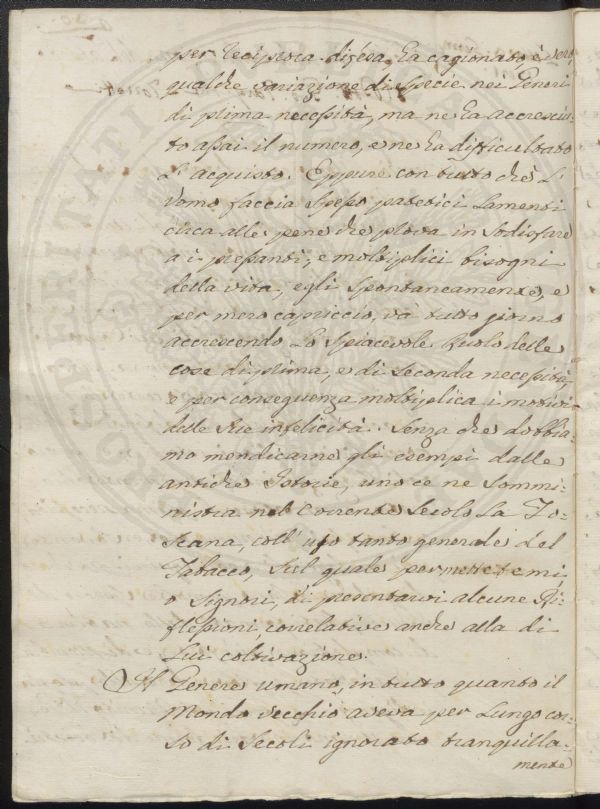 per reciproca difesa ha cagionato, è vero
qualche variazione di specie nei Generi
di prima necessità, ma ne ha accresciu-
to assai il numero, e ne ha difficultato
l'acquisto. Eppure con tutto che L'
Uomo faccia spesso patetici Lamenti
circa alle pene che prova in sodisfare
a i pressanti, e moltiplici bisogni
della vita, egli spontaneamente, e
per mero capriccio, và tutto giorno
accrescendo lo spiacevole Ruolo delle
cose di prima, e di seconda necessità,
e per conseguenza moltiplica i motivi
delle sue infelicità. Senza che dobbia-
mo mendicarne gli esempi dalle
antiche Istorie, uno ce ne sommi-
nistra nel corrente secolo la To-
scana, coll' uso tanto generale del
Tabacco, sul quale permettetemi,
o Signori, di presentarvi alcune Ri-
flessioni, correlative anche alla di
lui coltivazione.
Il Genere umano, in tutto quanto il
Mondo vecchio aveva per lungo cor-
so di secoli ignorato tranquilla-
mente